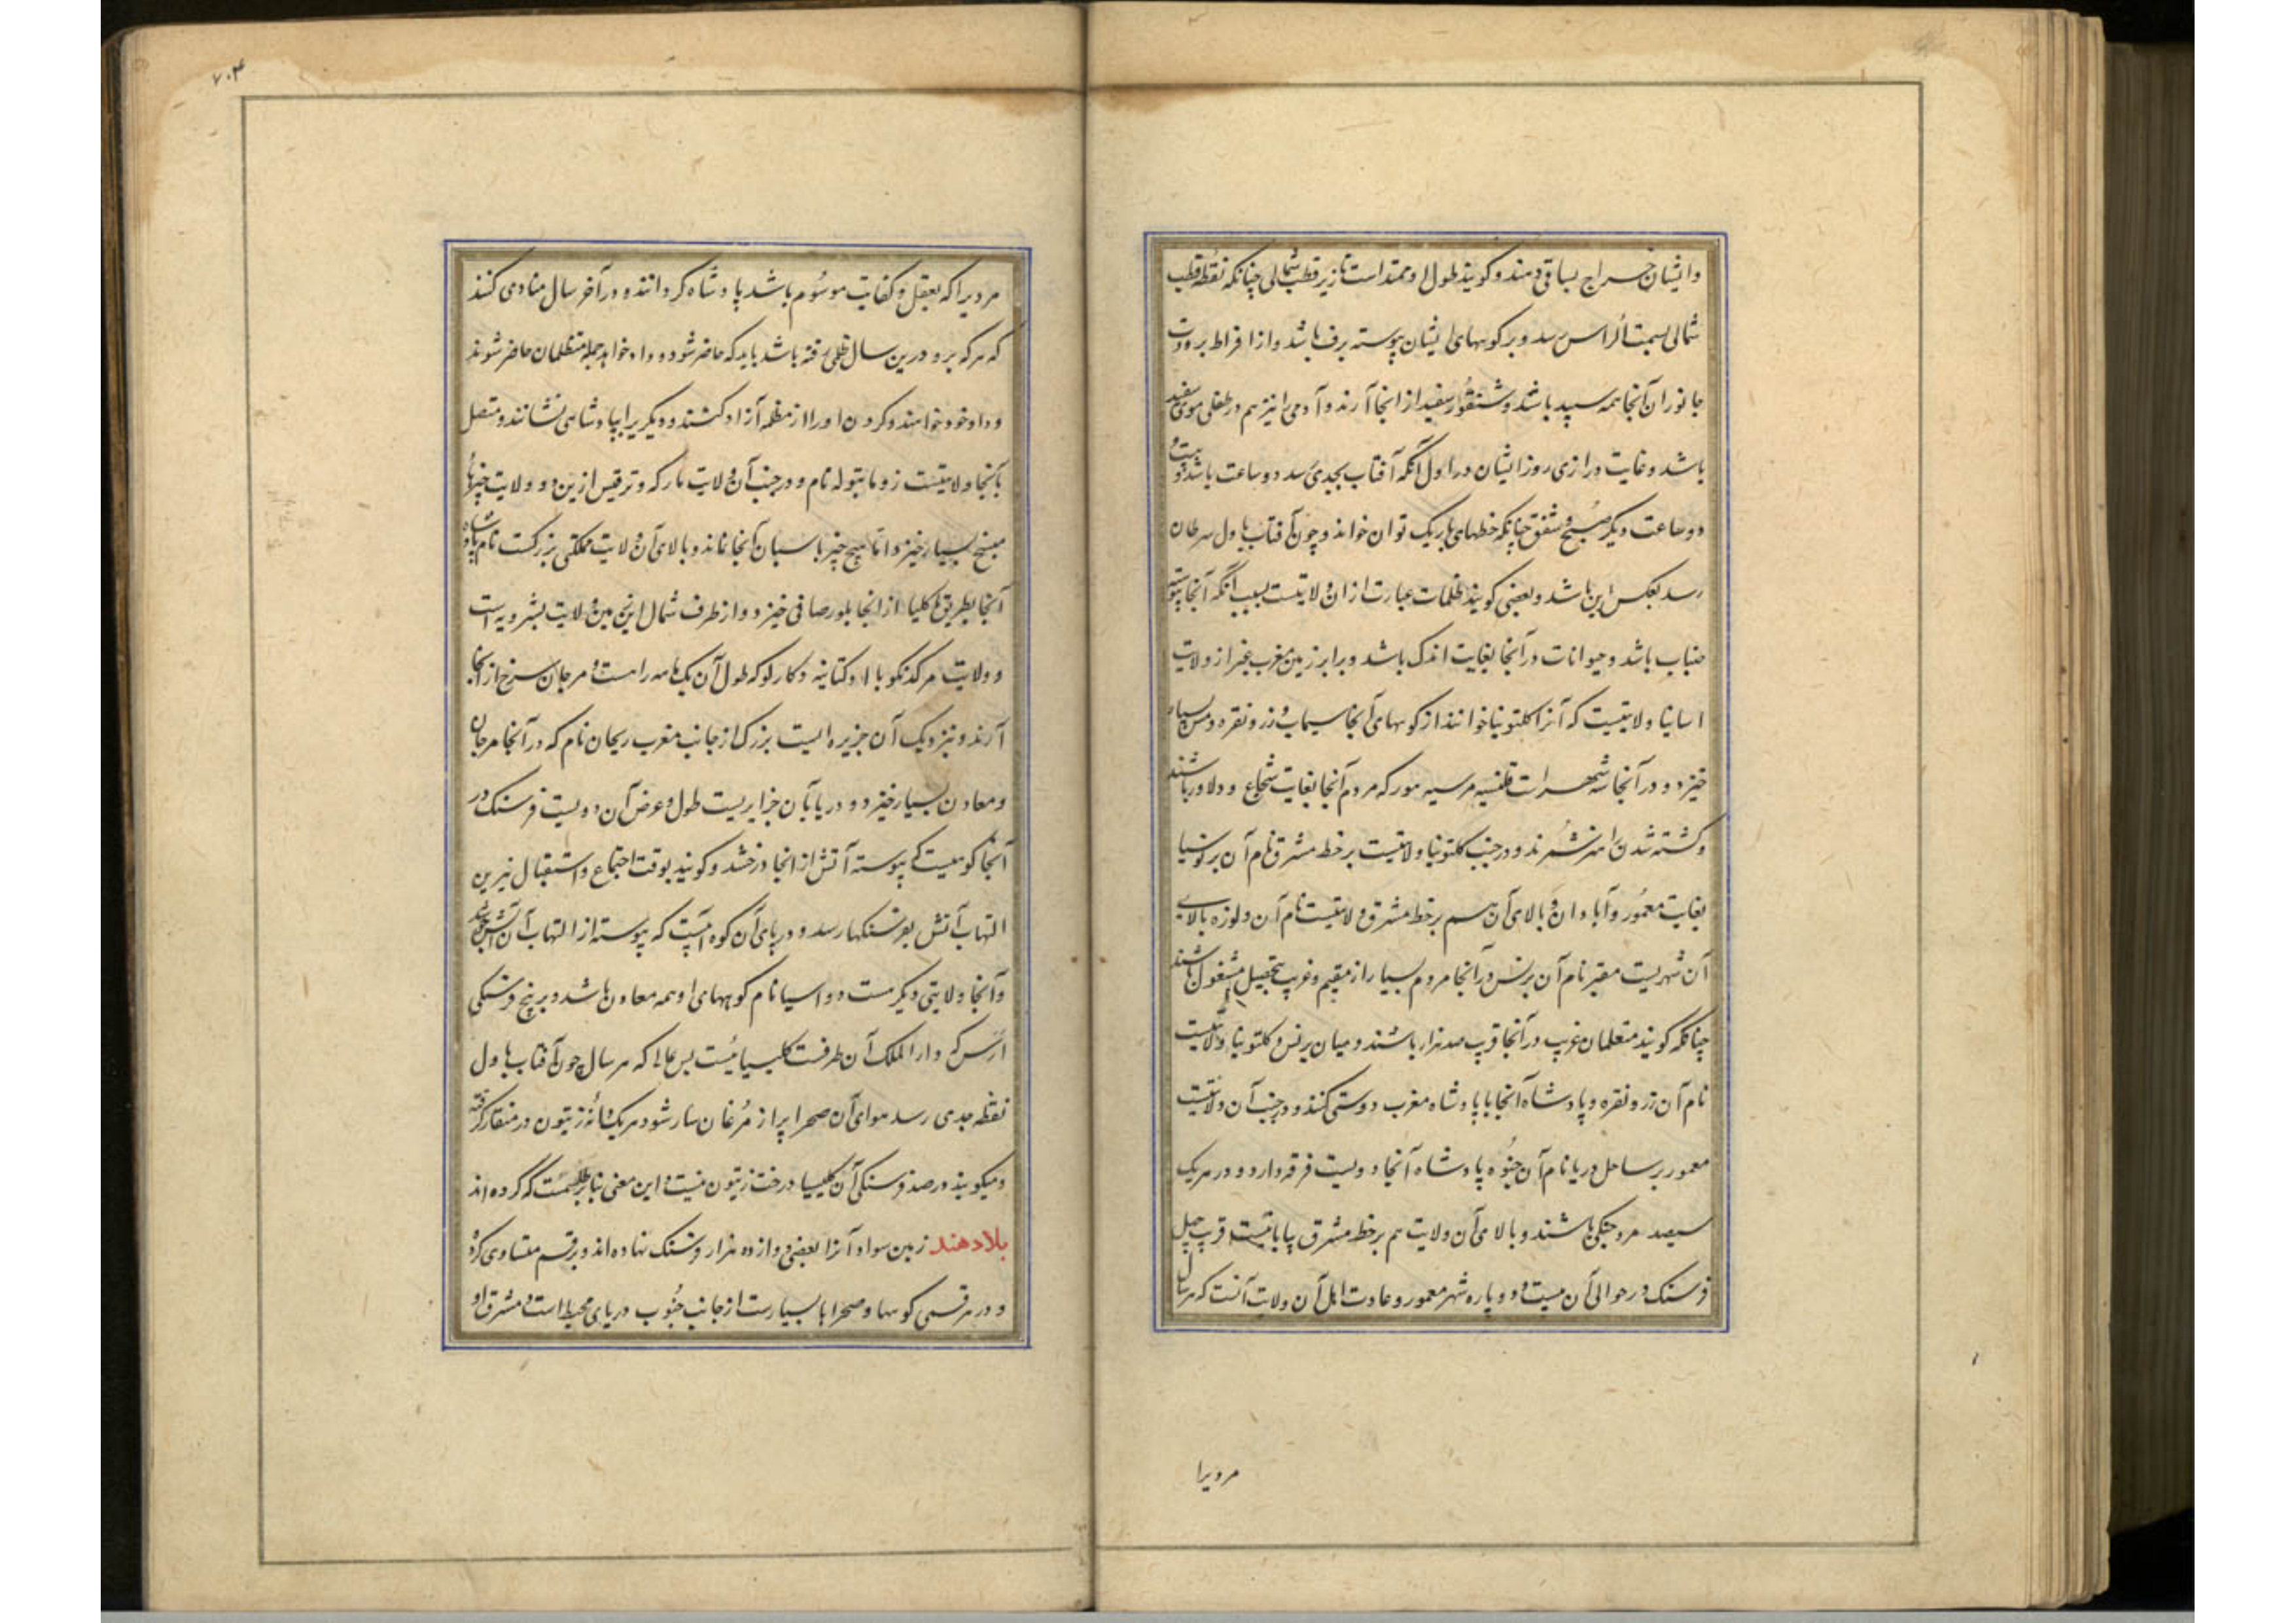 وایشان خراج بساقی دهند و گویند طول او ممتد است تا زیر قطب شمالی چنانکه نقطه قطب
شمالی بسمت الراس رسد و بر کوههای ایشان پیوسته برف باشد و از افراط برودت
جانوران آنجا همه سپید باشد و شنقور سفید از انجا آرند و آدمی را نیز هم در طفلی موی سفید
باشد و غایت درازی روز ایشان در اول آنکه آفتاب بجدی رسد دو ساعت باشد و بیست و
دو ساعت دیگر صبح و شفق چنانکه خطهای باریک توان خواند و چون آفتاب باول سرطان
رسد بعکس این باشد و بعضی گویند ظلمات عبارت از ان ولایتست بسبب آنکه آنجا پیوسته
ضباب باشد و حیوانات در آنجا بغایت اندک باشد و برابر زمین مغرب غیر از ولایت
اسانیا ولایتیست که آنرا کلتونیا خوانند از کوههای آنجا سیماب و زر و نقره و مس بسیار
خیزد و در آنجا سه شهر است قلنسیه مرسیه مور که مردم آنجا بغایت شجاع و دلاور باشند
و کشته شدن را هنر شمرند و در جنب کلتونیا ولایتیست بر خط مشرق نام آن برکونسیا
بغایت معمور و آبادان و بالای آن هم بر خط مشرق ولایتیست نام آن ولوزه بالای
آن شهریست معتبر نام آن برنس در آنجا مردم بسیار از مقیم و غریب بتحصیل مشغول باشند
چنانکه گویند متعلمان غریب در آنجا قرب صد هزار باشند و میان برنس و کلتونیا ولایتیست
نام آن زر و نقره و پادشاه آنجا با پادشاه مغرب دوستی کند و در جنب آن ولایتیست
معمور بر ساحل دریا نام آن جنوه پادشاه آنجا دویست فرقه دارد و در هر یک
سیصد مرد جنگی باشند و بالای آن ولایت هم بر خط مشرق بیابانیست قرب چهل
فرسنگ در حوالی آن بیست و دو پاره شهر معمور و عادت اهل آن ولایت آنست که هر سال
مردیرا
۷۰۴
مردیرا که بعقل و کفایت موسوم باشد پادشاه گردانند و در آخر سال منادی کنند
که هر که برو درین سال ظلمی رفته باشد باید که حاضر شود و داد خواهد جمله متظلمان حاضر شوند
و داد خود خواهند و گردن او را از مظلمه آزاد کنند و دیگریرا بپادشاهی نشانند و متصل
بآنجا ولایتیست زومانیوله نام و در جنب آن ولایت مارکه و ترقیس ازین دو ولایت چیزها
بسیار خیزد اما هیچ چیز باسبان آنجا نماند و بالای آن ولایت مملکتی بزرگست نام پادشاه
آنجا بطریق کلیا از انجا بلور صافی خیزد و از طرف شمال این زمین ولایت بشرویه است
و ولایت مرکدنکو با او کتانیه و کارلوکه طول آن یک ماهه راهست و مرجان سرخ از آنجا
آرند و نزدیک آن جزیره ایست بزرگ از جانب مغرب ریحان نام که در آنجا مرجان
و معادن بسیار خیزد و در پایان جزایریست طول و عرض آن دویست فرسنگ در
آنجا کوهیست که پیوسته آتش از انجا درخشد و گویند بوقت اجتماع و استقبال نیرین
التهاب آتش بفرسنگها رسد و در پای آن کوه است که پیوسته از التهاب آن آتش
و آنجا ولایتی دیگر هست دواسیا نام کوههای او همه معادن باشد و بر پنج فرسنگی
ارس که دار الملک آن طرفست کلیسیائیست بس عالی که هر سال چون آفتاب باول
نقطه جدی رسد هوای آن صحرا پر از مرغان سار شود هر یک دانه زیتون در منقار گرفته
و میگویند در صد فرسنگی آن کلیسیا درخت زیتون نیست و این معنی بنا بر طلسمت که کرده اند
بلاد هند زمین سواد آنرا بعضی دوازده هزار فرسنگ نهاده اند و بر قسم متساوی کرده
و در هر قسمی کوهها و صحراها بسیارست از جانب جنوب دریای محیط است و مشرق او